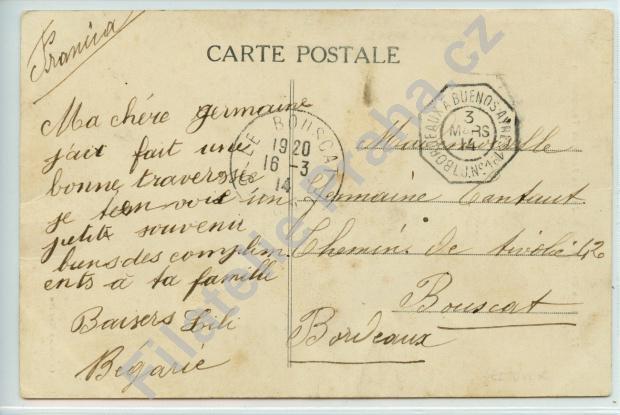 Francia
CARTE POSTALE
Ma chére germaine
j'ait fait une
bonne traversée
je ten voie un
petit souvenir
biensdes complim
ents à ta famille
Baisers Lili
Begarie
LE BOUSCAT
1920
16-3
14
BORDEAUX A BUENOS-AYRES
3
MARS
14
L.J.N°
Mademoiselle
Germaine
Chemin de tivoli 42
Bouscat
Bordeaux
Filatelie Praha.cz